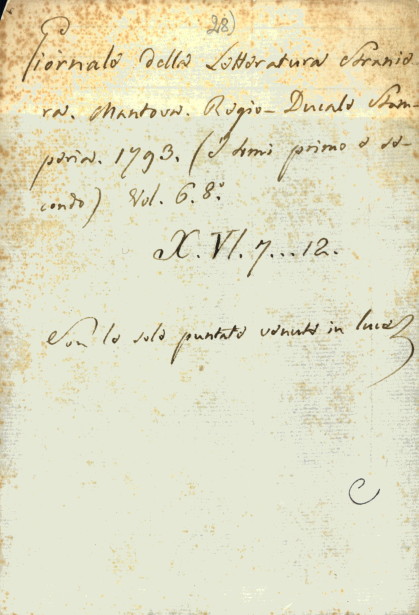 28)
Giornale della Letteratura Stranie
ra. Mantova. Regio-Ducale Stam
peria. 1793. (I tomi primo e se-
condo) Vol. 6. 8.°
X. VI. 7...12.
Son le sole puntate venute in luce
C